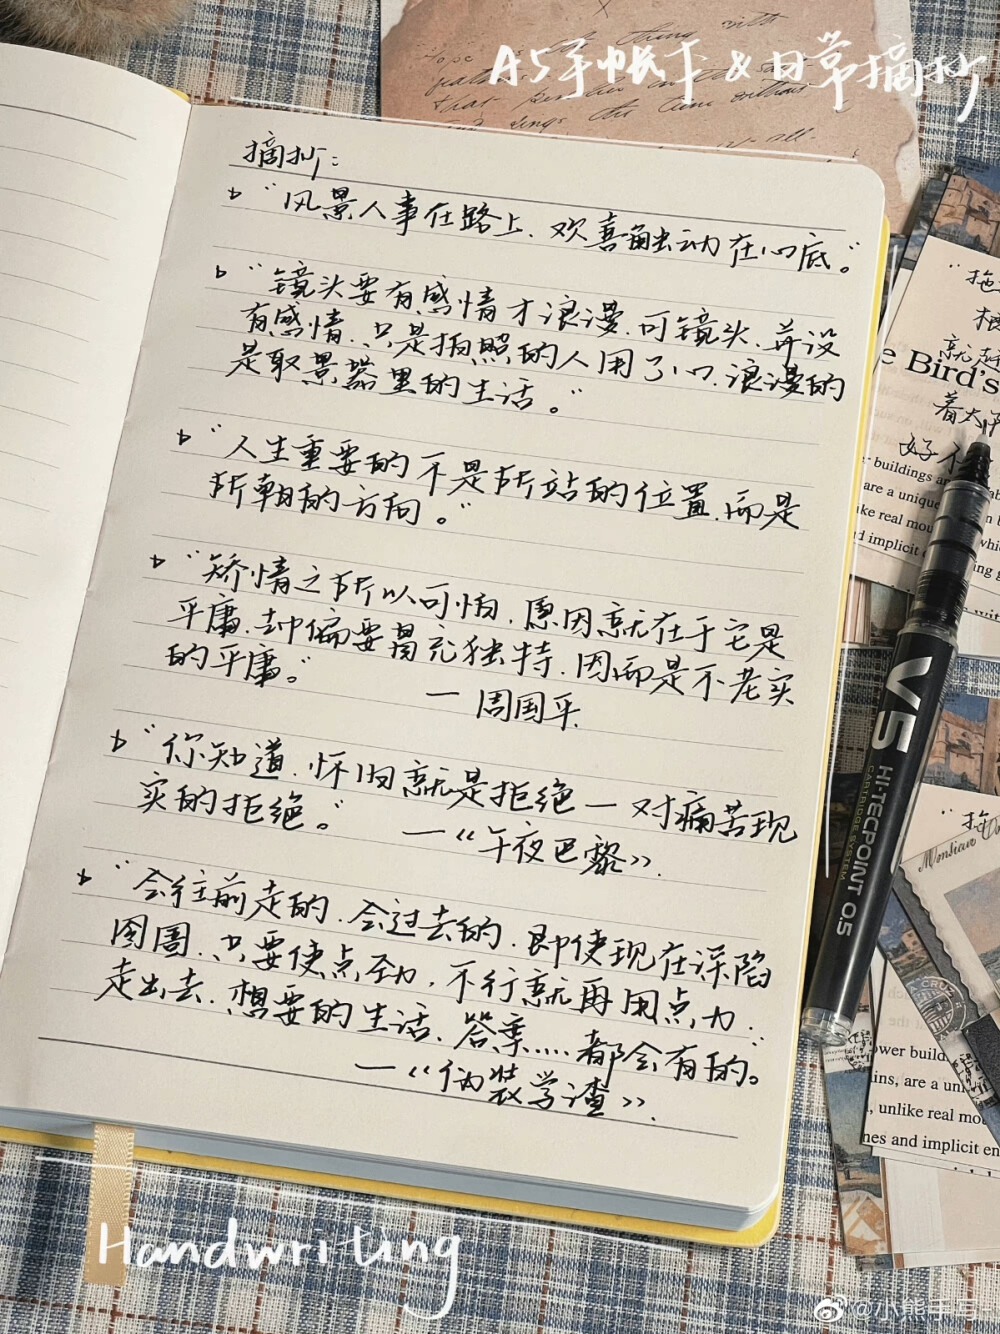 A5手帐本&日常摘抄
摘抄:
"风景人事在路上、欢喜触动在心底。"
"镜头要有感情才浪漫,可镜头,并没
有感情,只是拍照的人用了心,浪漫的
是取景器里的生活。"
"人生重要的不是所站的位置,而是
所朝的方向。"
"矫情之所以可怕,原因就在于它是
平庸,却偏要冒充独特,因而是不老实
的平庸。"
—周国平
"你知道,怀旧就是拒绝—对痛苦现
实的拒绝。"
—《午夜巴黎》
"会往前走的,会过去的,即使现在深陷
囹圄,只要使点劲,不行就再用点力,
走出去,想要的生活、答案……都会有的。"
—《伪装学渣》
e Bird's
buildings an
are a unique
ike real mou
d implicit
V5
HI-TECPOINT 0.5
CARTRIDGE SYSTEM
ower build
ins, are a uni
, unlike real mo
nes and implicit en
Handwriting
@小熊手写-